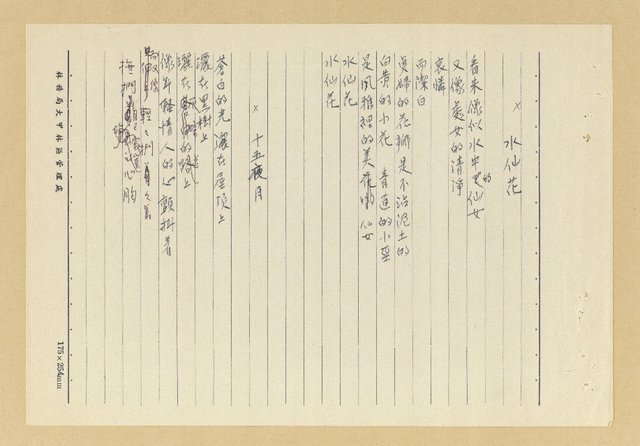 × 水仙花
看来像似水中的仙女
又像處女的清淨
哀憐
而潔白
貞歸的花瓣是不沾泥土的
白黄的小花 青蓮的小莖
是風雅裡的美花嗷 仙女
水仙花
水仙花
× 十五夜月
蒼白的光 灑在屋頂上
灑在黑樹上
灑在 的路上
像年輕情人的心顫抖著
輕々
撫摸 心胸
林務局大甲林區管理處
175×254mm